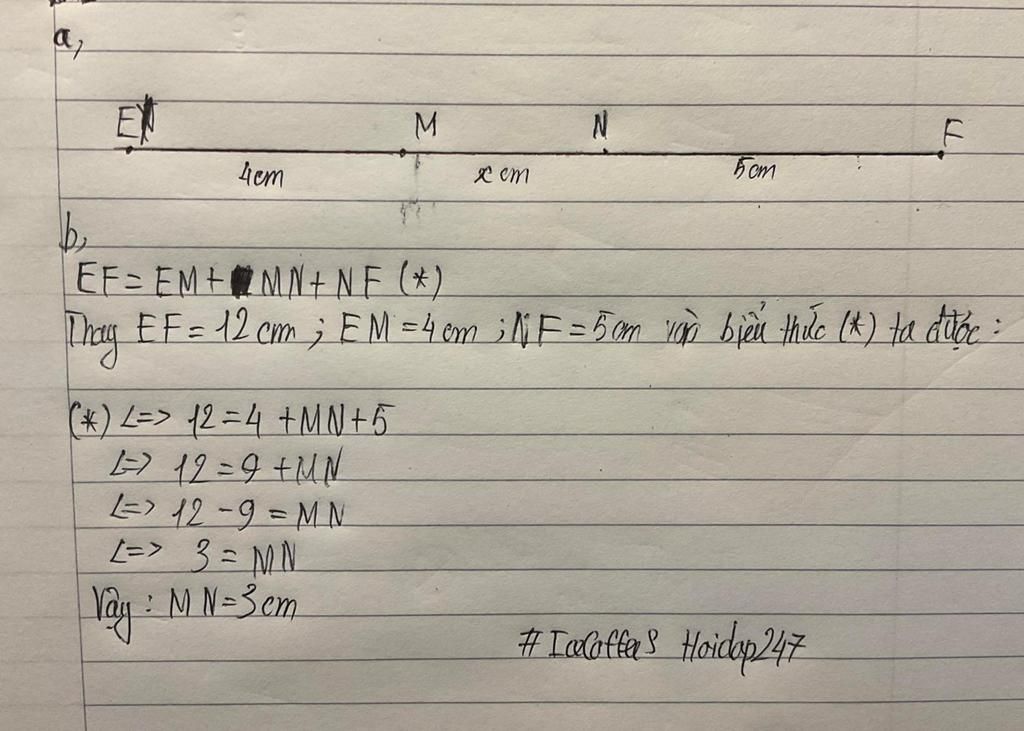 a,
E M N F
4cm x cm 5cm
b,
EF = EM + MN + NF (*)
Thay EF = 12 cm ; EM = 4 cm ; NF = 5 cm vào biểu thức (*) ta được :
(*) <=> 12 = 4 + MN + 5
<=> 12 = 9 + MN
<=> 12 - 9 = MN
<=> 3 = MN
Vậy : MN = 3 cm
# Hoidap247